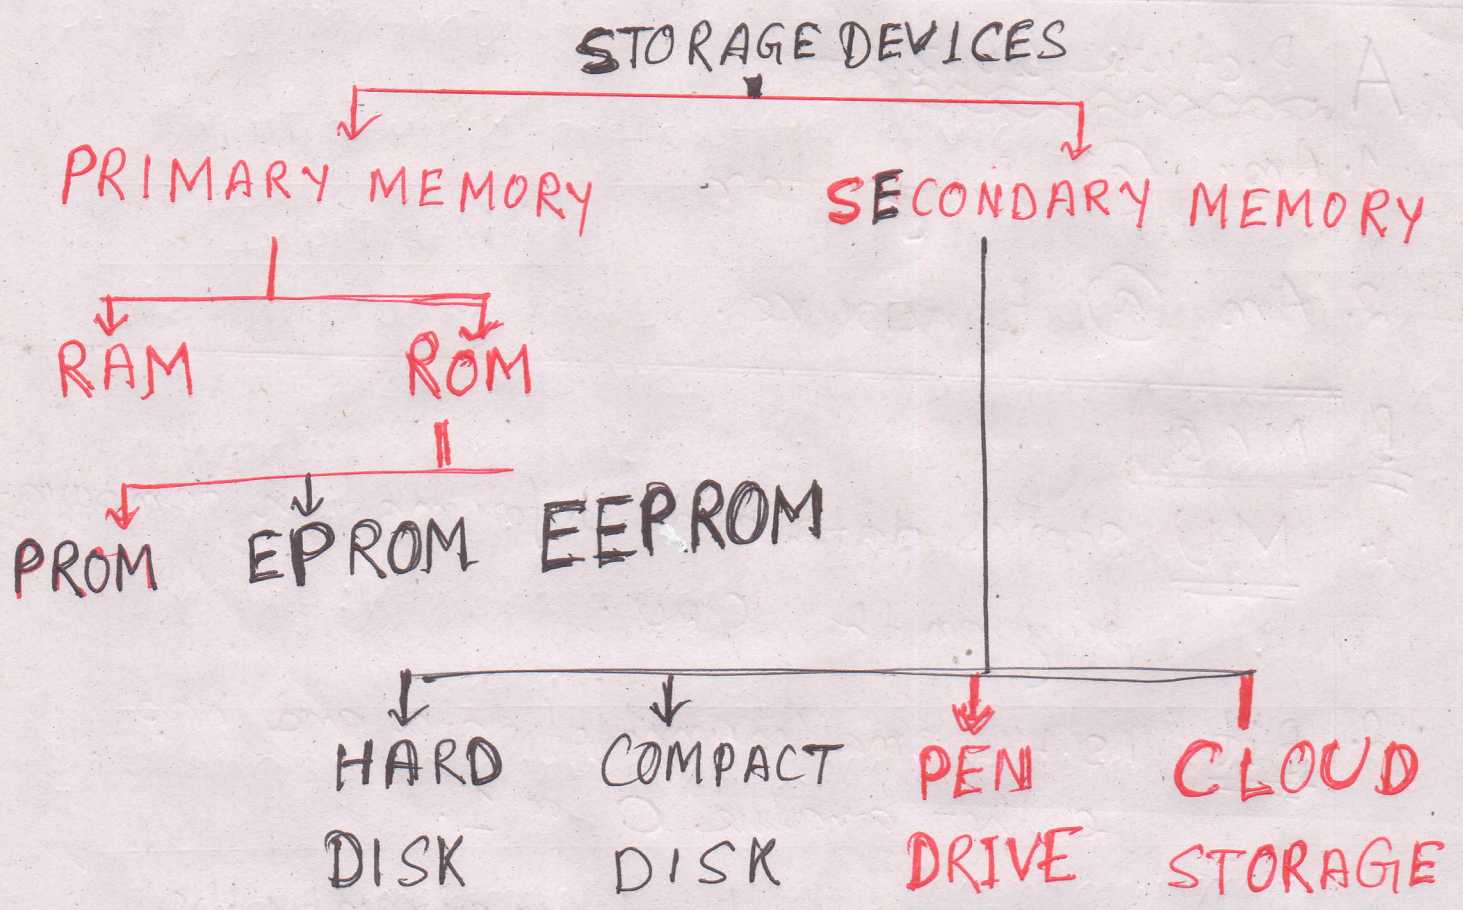 STORAGE DEVICES
PRIMARY MEMORY
SECONDARY MEMORY
RAM
ROM
PROM
EPROM
EEPROM
HARD
DISK
COMPACT
DISK
PEN
DRIVE
CLOUD
STORAGE